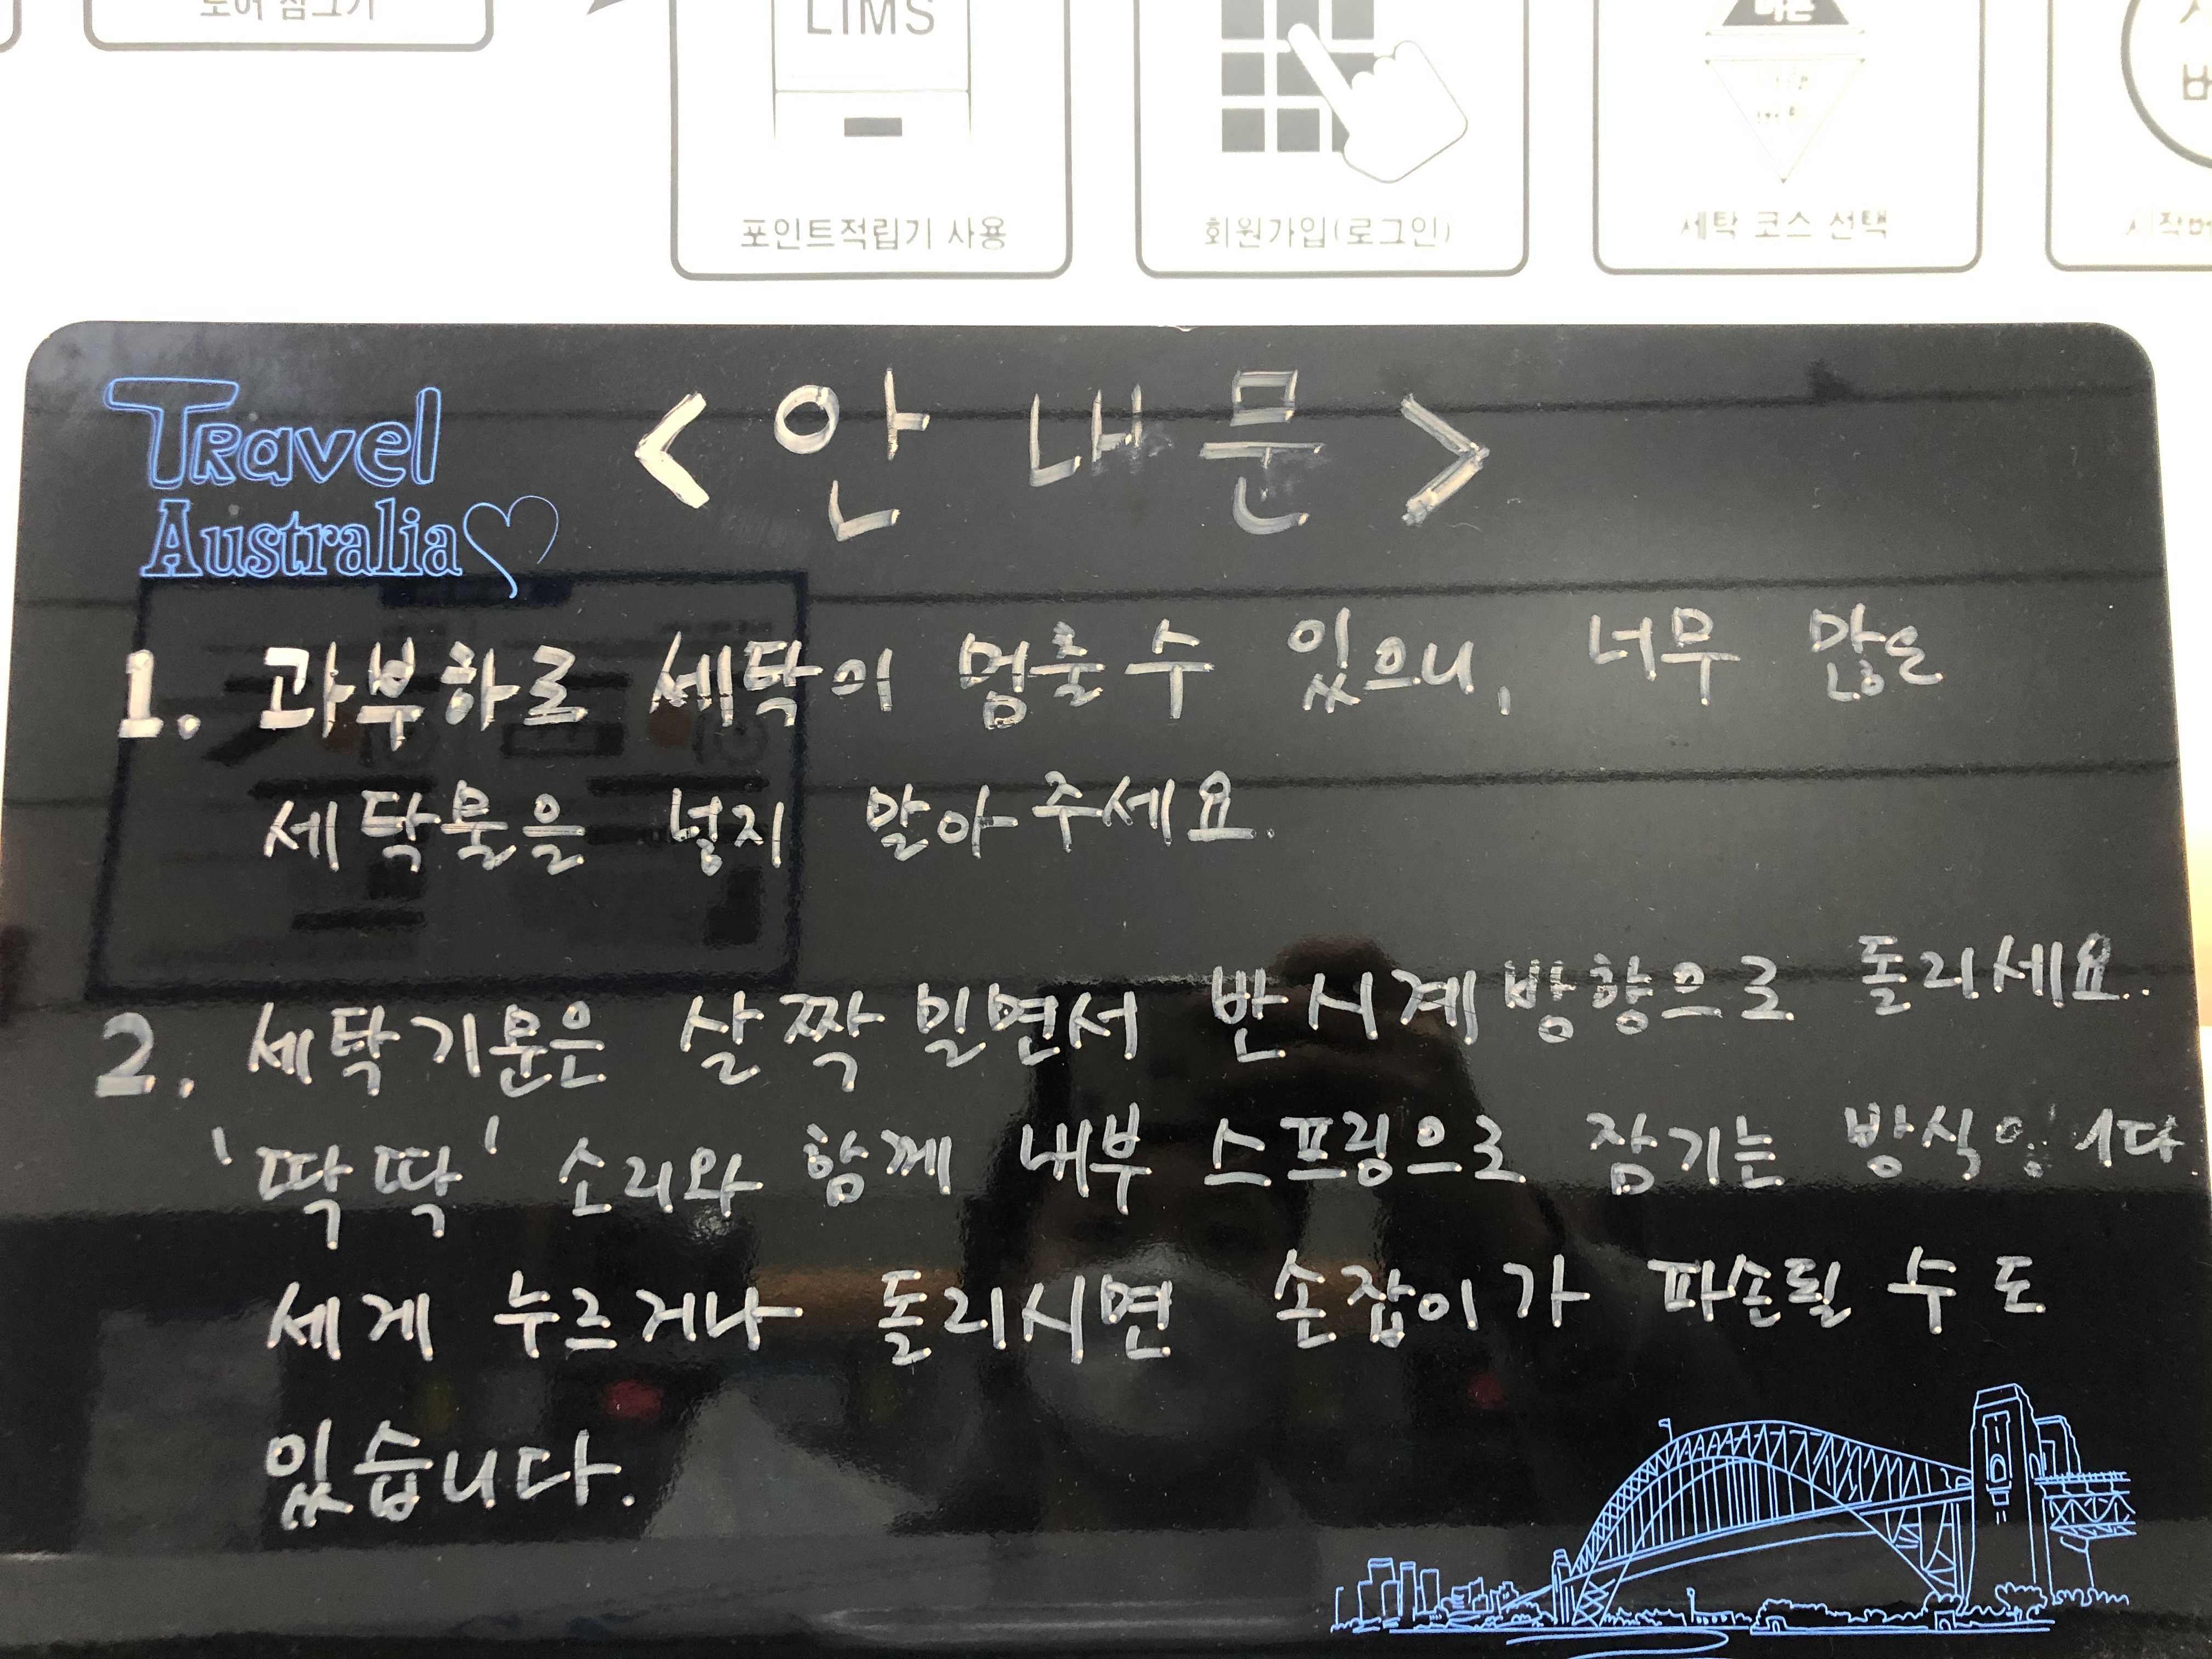 도어 잠그기
LIMS
포인트적립기 사용
회원가입(로그인)
세탁 코스 선택
Travel
Australia
<안내문>
1. 과부하로 세탁이 멈출 수 있으니, 너무 많은
세탁물을 넣지 말아주세요.
2. 세탁기문은 살짝 밀면서 반시계방향으로 돌리세요.
'딱딱' 소리와 함께 내부 스프링으로 잠기는
세게 누르거나 돌리시면 손잡이가 파손될 수도
있습니다.